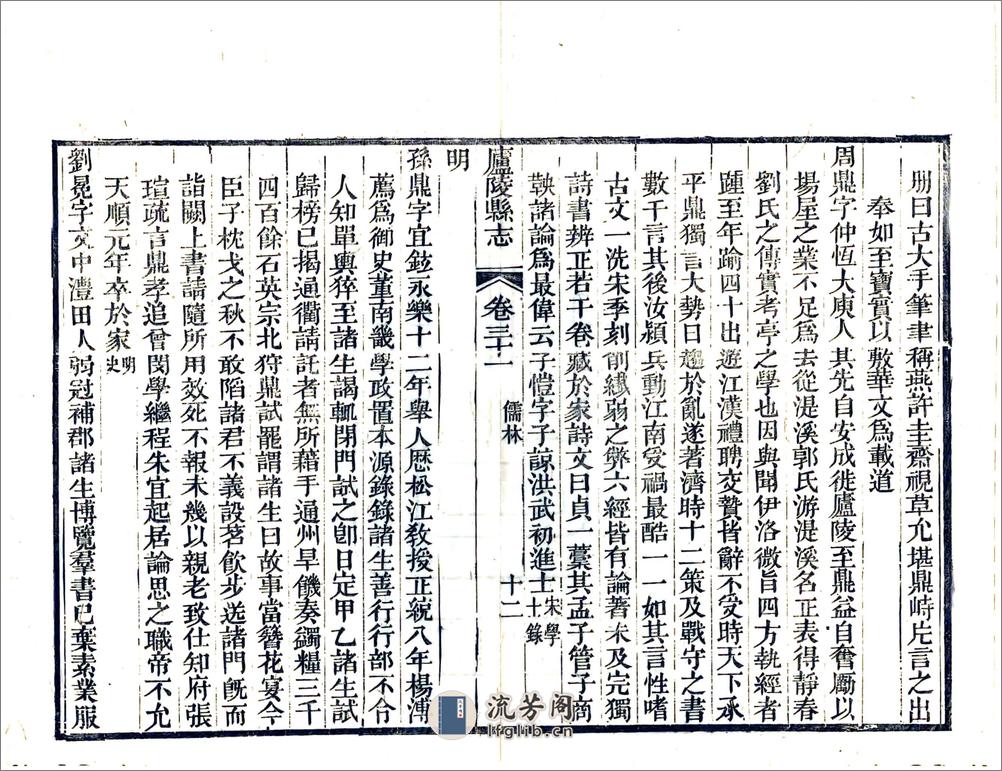 册曰古大手筆聿稱燕許圭齋視草允堪鼎峙片言之出
奉如至寶實以敷華文爲載道
周鼎字仲恆大庾人其先自安成徙廬陵至鼎益自奮勵以
場屋之業不足爲去從湜溪郭氏游湜溪名正表得靜春
劉氏之傳實考亭之學也因與聞伊洛微旨四方執經者
踵至年踰四十出遊江漢禮聘交贄皆辭不受時天下承
平鼎獨言大勢日趨於亂遂著濟時十二策及戰守之書
數千言其後汝潁兵動江南受禍最酷一一如其言性嗜
古文一洗宋季刻削纖弱之弊六經皆有論著未及完獨
詩書辨正若干卷藏於家詩文曰貞一藁其孟子管子商
鞅諸論爲最偉云子愷字子諒洪武初進士宋學士錄
廬陵縣志
卷三十一
儒林
十二
明
孫鼎字宜鉉永樂十二年舉人厯松江敎授正統八年楊溥
薦爲御史董南畿學政置本源錄錄諸生善行行部不令
人知單輿猝至諸生謁輒閉門試之卽日定甲乙諸生試
歸榜已揭通衢請託者無所藉手通州旱饑奏蠲糧三千
四百餘石英宗北狩鼎試罷謂諸生曰故事當簪花宴今
臣子枕戈之秋不敢陷諸君不義設茗飲步送諸門旣而
詣闕上書請隨所用效死不報未幾以親老致仕知府張
瑄疏言鼎孝追曾閔學繼程朱宜起居論思之職帝不允
天順元年卒於家明史
劉晃字文中澧田人弱冠補郡諸生博覽羣書已棄素業服
流芳阁
lfglib.cn